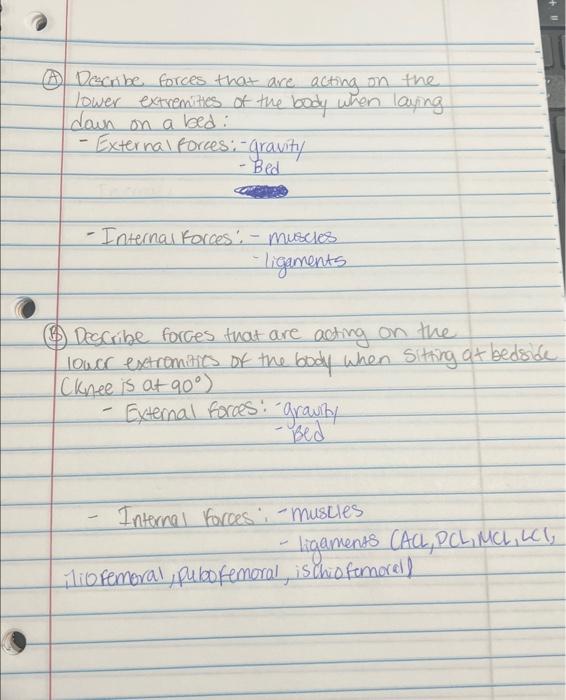 Ⓐ Describe forces that are acting on the
lower extremities of the body when laying
down on a bed:
- External forces: - gravity
- Bed
- Internal Forces: - muscles
- ligaments
Ⓑ Describe forces that are acting on the
lower extremities of the body when sitting at bedside
(knee is at 90°)
- External forces: - gravity
- Bed
- Internal forces: - muscles
- ligaments (ACL, PCL, MCL, LCL,
iliofemoral, pubofemoral, ischiofemoral)